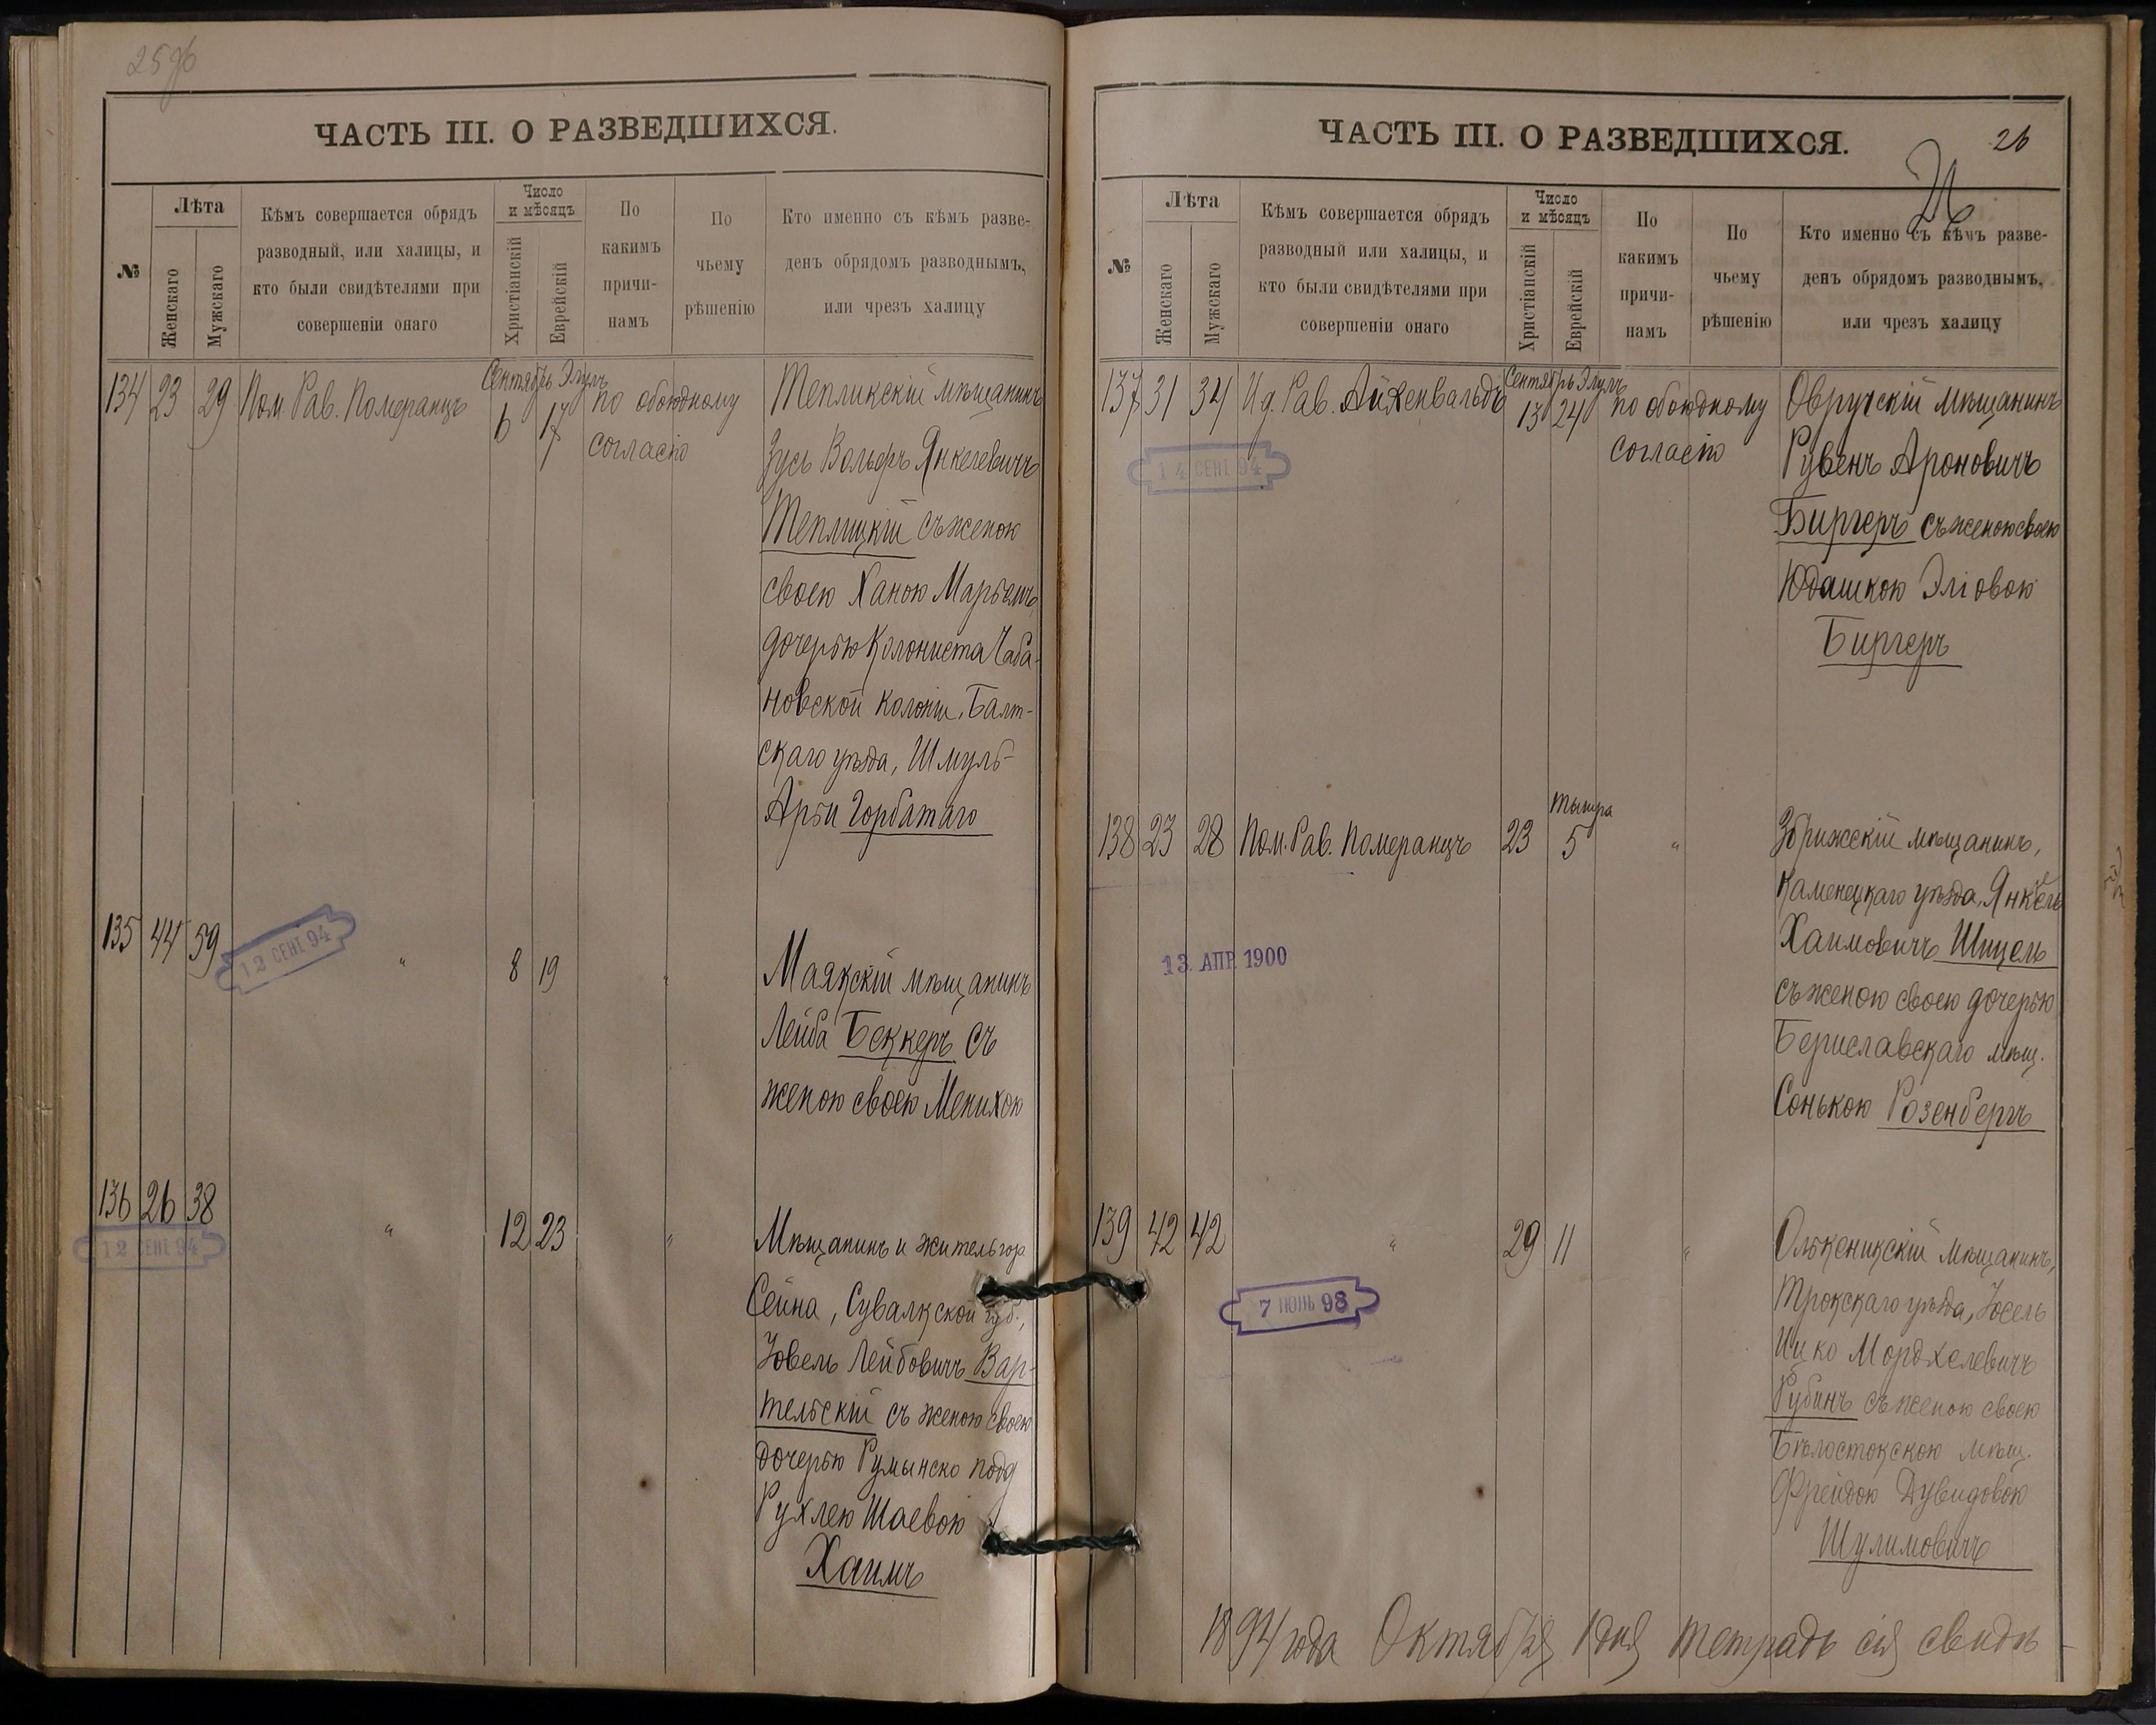 25об
ЧАСТЬ III. О РАЗВЕДШИХСЯ.
№
Лѣта
Женскаго
Мужскаго
Кѣмъ совершается обрядъ
разводный, или халицы, и
кто были свидѣтелями при
совершеніи онаго
Число
и мѣсяцъ
Христіанскій
Еврейскій
По
какимъ
причи-
намъ
По
чьему
рѣшенію
Кто именно съ кѣмъ разве-
денъ обрядомъ разводнымъ,
или чрезъ халицу
134 23 29 Пом Рав. Померанцъ
Сентябрь Элулъ
6 17
по обоюдному
согласію
Тепликскій мѣщанинъ
Зусь Вольфъ Янкелевичъ
Теплицкій съ женою
своею Ханою Марьемъ,
дочерью Колониста Чаба-
новской колоніи, Балт-
скаго уѣзда, Шмуль
Арьи Горбатаго
135 44 59
12 СЕНТ 94
" 8 19 "
Маякскій мѣщанинъ
Лейба Беккеръ съ
женою своею Менихою
136 26 38
12 СЕНТ 94
" 12 23 "
Мѣщанинъ и житель гор
Сейна, Сувалкской губ.,
Іовель Лейбовичъ Вар-
тельскій съ женою своею
дочерью Румынско подд
Рухлею Шаевою
Хаимъ
ЧАСТЬ III. О РАЗВЕДШИХСЯ.
26
№
Лѣта
Женскаго
Мужскаго
Кѣмъ совершается обрядъ
разводный или халицы, и
кто были свидѣтелями при
совершеніи онаго
Число
и мѣсяцъ
Христіанскій
Еврейскій
По
какимъ
причи-
намъ
По
чьему
рѣшенію
Кто именно съ кѣмъ разве-
денъ обрядомъ разводнымъ,
или чрезъ халицу
137 31 34 Ид. Рав. Айхенвальдъ
Сентябрь Элулъ
13 24
по обоюдному
согласію
14 СЕНТ 94
Овручскій мѣщанинъ
Рувенъ Ароновичъ
Биргеръ съ женою своею
Юдашкою Эліовою
Биргеръ
138 23 28 Пом. Рав. Померанцъ 23
5 "
13. АПР. 1900
Збрижскій мѣщанинъ,
Каменецкаго уѣзда, Янкель
Хаимовичъ Шпцель
съ женою своею дочерью
Бериславскаго мѣщ.
Сонькою Розенбергъ
139 42 42 " 29 11 "
7 ІЮНЬ 98
Олькеникскій мѣщанинъ,
Трокскаго уѣзда, Іосель
Ицко Мордхелевичъ
Рубинъ съ женою своею
Бѣлостокскою мѣщ.
Фрейдою Дувидовою
Шулимовичъ
1894 года Октября 1 дня тетрадь сія свидѣ-